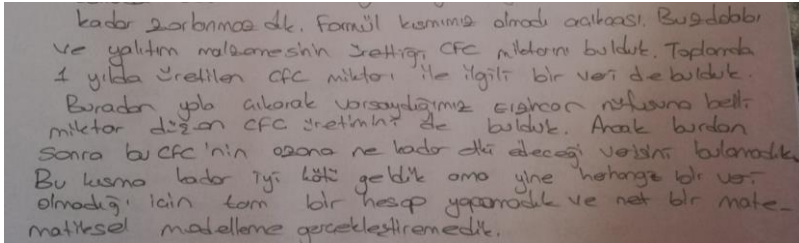 kadar zorlanmazdık. Formül kısmımız olmadı açıkçası. Buzdolabı
ve yalıtım malzemesinin ürettiği CFC miktarını bulduk. Toplamda
1 yılda üretilen CFC miktarı ile ilgili bir veri de bulduk.
Buradan yola çıkarak varsaydığımız nüfusuna belli
miktar düşen CFC üretimini de bulduk. Ancak burdan
sonra bu CFC'nin ozona ne kadar etki edeceği verisini bulamadık.
Bu kısma kadar iyi kötü geldik ama yine herhangi bir veri
olmadığı için tam bir hesap yapamadık ve net bir mate-
matiksel modelleme gerçekleştiremedik.